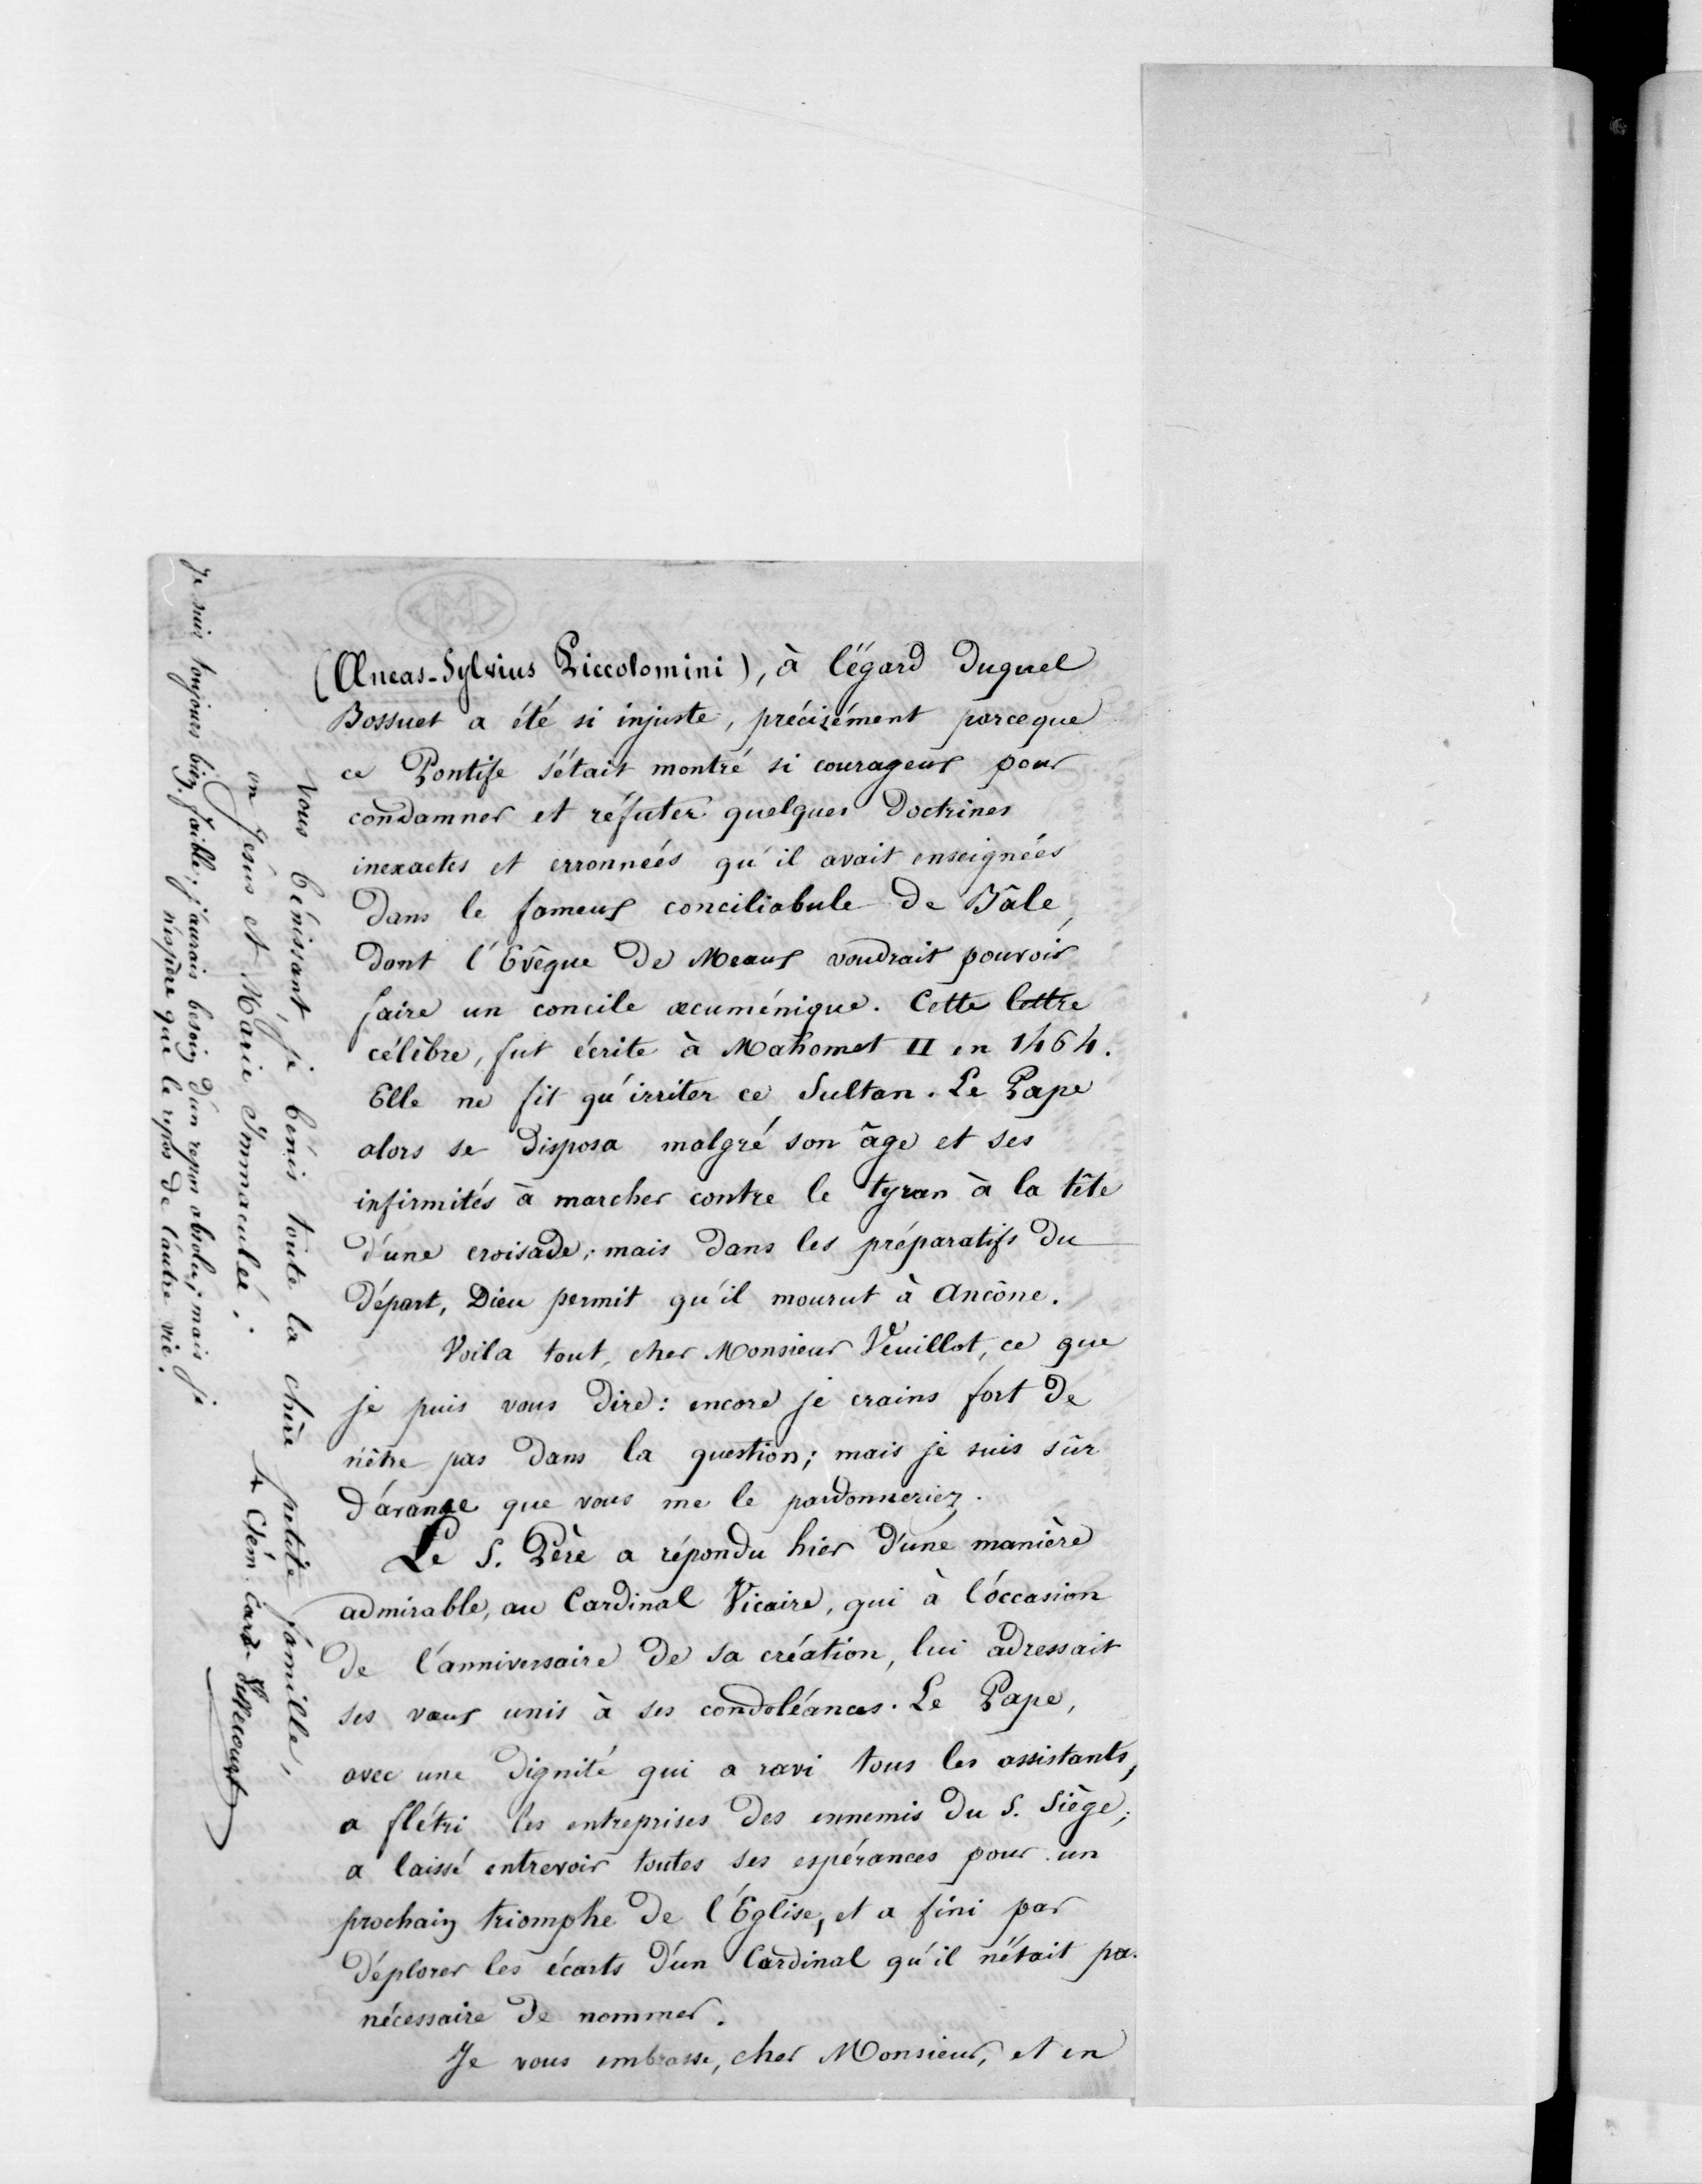 (Æneas-Sylvius Piccolomini), à l'égard duquel
Bossuet a été si injuste, précisément parceque
ce Pontife s'était montré si courageux pour
condamner et réfuter quelques doctrines
inexactes et erronnées qu'il avait enseignées
dans le fameux conciliabule de Bâle,
dont l'Evêque de Meaux voudrait pouvoir
faire un concile œcuménique. Cette lettre
célèbre, fut écrite à Mahomet II en 1464.
Elle ne fit qu'irriter ce Sultan. Le Pape
alors se disposa malgré son âge et ses
infirmités à marcher contre le tyran à la tête
d'une croisade; mais dans les préparatifs du
départ, Dieu permit qu'il mourut à Ancône.
Voila tout, cher Monsieur Veuillot, ce que
je puis vous dire: encore je crains fort de
n'être pas dans la question; mais je suis sûr
d'avance que vous me le pardonneriez.
Le S. Père a répondu hier d'une manière
admirable, au Cardinal Vicaire, qui à l'occasion
de l'anniversaire de sa création, lui adressait
ses vœux unis à ses condoléances. Le Pape,
avec une dignité qui a ravi tous les assistants,
a flétri les entreprises des ennemis du S. Siège;
a laissé entrevoir toutes ses espérances pour un
prochain triomphe de l'Eglise, et a fini par
déplorer les écarts d'un Cardinal qu'il n'était pa.
nécessaire de nommer.
Je vous embrasse, cher Monsieur, et en
vous bénissant, je bénis toute la chère petite famille,
en Jésus et Marie Immaculée.
+ Clém. Card. Villecourt
Je suis toujours bien faible; j'aurais besoin d'un repos absolu; mais je
n'espère que le repos de l'autre vie.